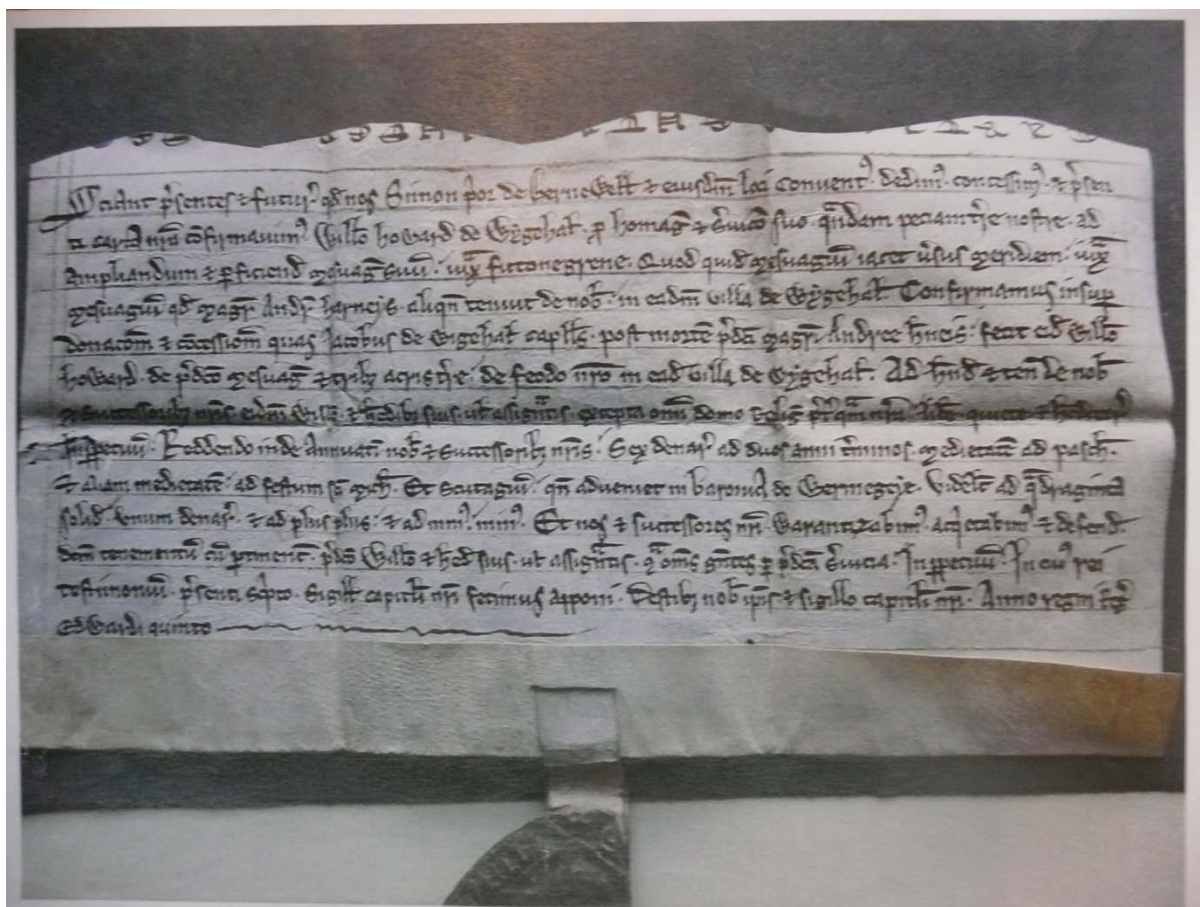 Sciant p̃sentes ⁊ futur̉ qd̃ nos Simon p̃or de bernewell ⁊ eiusdm̃ loci Convent̉ . dedim̉ . concessim̉ . ⁊ p̃sen
ti carta nr̃a cõfirmavim̉ Will̃o howard de Wygehal̃ . p homag̃ ⁊ s̃uic̃o suo . qñdam peciam tr̃e nostre . ad
ampliandum ⁊ p̱ficiend̃ mesuag̃ suũ . iuxᵃ fittonegrene . Quod quid̃ mesuagiũ iacet ṽsus meridiem . iuxᵃ
mesuagiũ qd̃ magr̃ Andr̃ harneis . aliqñ tenuit de nob̃ . in eadm̃ villa de Wygehal̃ Confirmamus insup̱
donac̃om̃ ⁊ cõcessiom̃ quas Jacobus de Wigehal̃ cap̱ll̃s . post mortẽ p̃dc̃i magr̃i Andree h̃neis . fecit eid̃ Will̃o
howard . de p̃dc̃o mesuag̃ ⁊ trib̃ʒ acris tr̃e . de feodo nr̃o in ead̃ villa de Wygehal̃ . Ad h̃nd̃ ⁊ teñ de nob̃
⁊ successorib̃ʒ nr̃is eidm̃ Will̃o . ⁊ h̃edib̃ʒ suis . ul̃ assignᵃtis . excepta om̃i domo relig̃ p̃t̃ qᵃm nr̃am . lib̃e quiete ⁊ h̃editar̃
Inp̱petuũ . Reddendo inde Annuati᷑ nob̃ ⁊ Successorib̃ʒ nr̃is . Sex denar̃ ad duos anni t̃minos . medietatẽ ad pasch̃ .
⁊ aliam medietatẽ . ad festum sc̃i mich̃ . Et Scutagiũ . qñ advenĩet in baronia de Wermegeye . Videl̃t ad qᵃdraginta
solid̃ . Unum denar̃ . ⁊ ad plus plus . ⁊ ad min̉ . min̉ . Et nos ⁊ successores nr̃i Warantizabim̉ . acq̉etabim̉ ⁊ defend̃
dc̃m tenementũ cũ p̱tinent̃ . p̃dc̃o Will̃o ⁊ h̃ed̃ suis . ul̃ assignᵃtis . cᵃ om̃s gñtes p̱ p̃dc̃a s̃uicia . Inp̱petuũ . In cuỉ rei
testimoniũ . p̃senti sc̉pto . Sigill̃ capitl̃i nr̃i fecimus apponi . Testib̃ʒ nob̃ ip̃is ⁊ sigillo capitl̃i nr̃i . Anno regni reg̃
Edwardi quinto